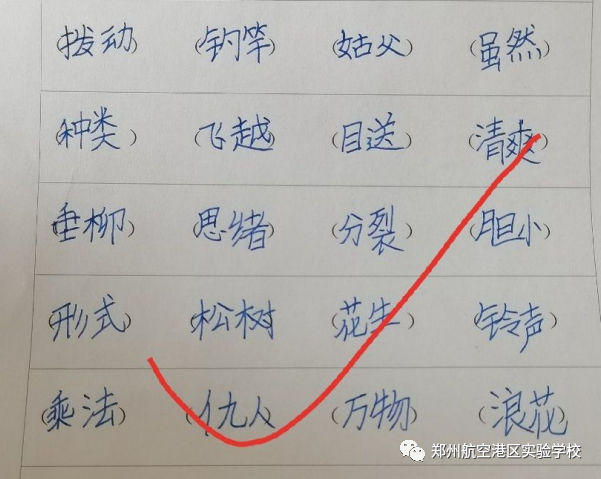 (拨动) (钓竿) (姑父) (虽然)
(种类) (飞越) (目送) (清爽)
(垂柳) (思绪) (分裂) (胆小)
(形式) (松树) (花生) (铃声)
(乘法) (仇人) (万物) (浪花)
郑州航空港区实验学校